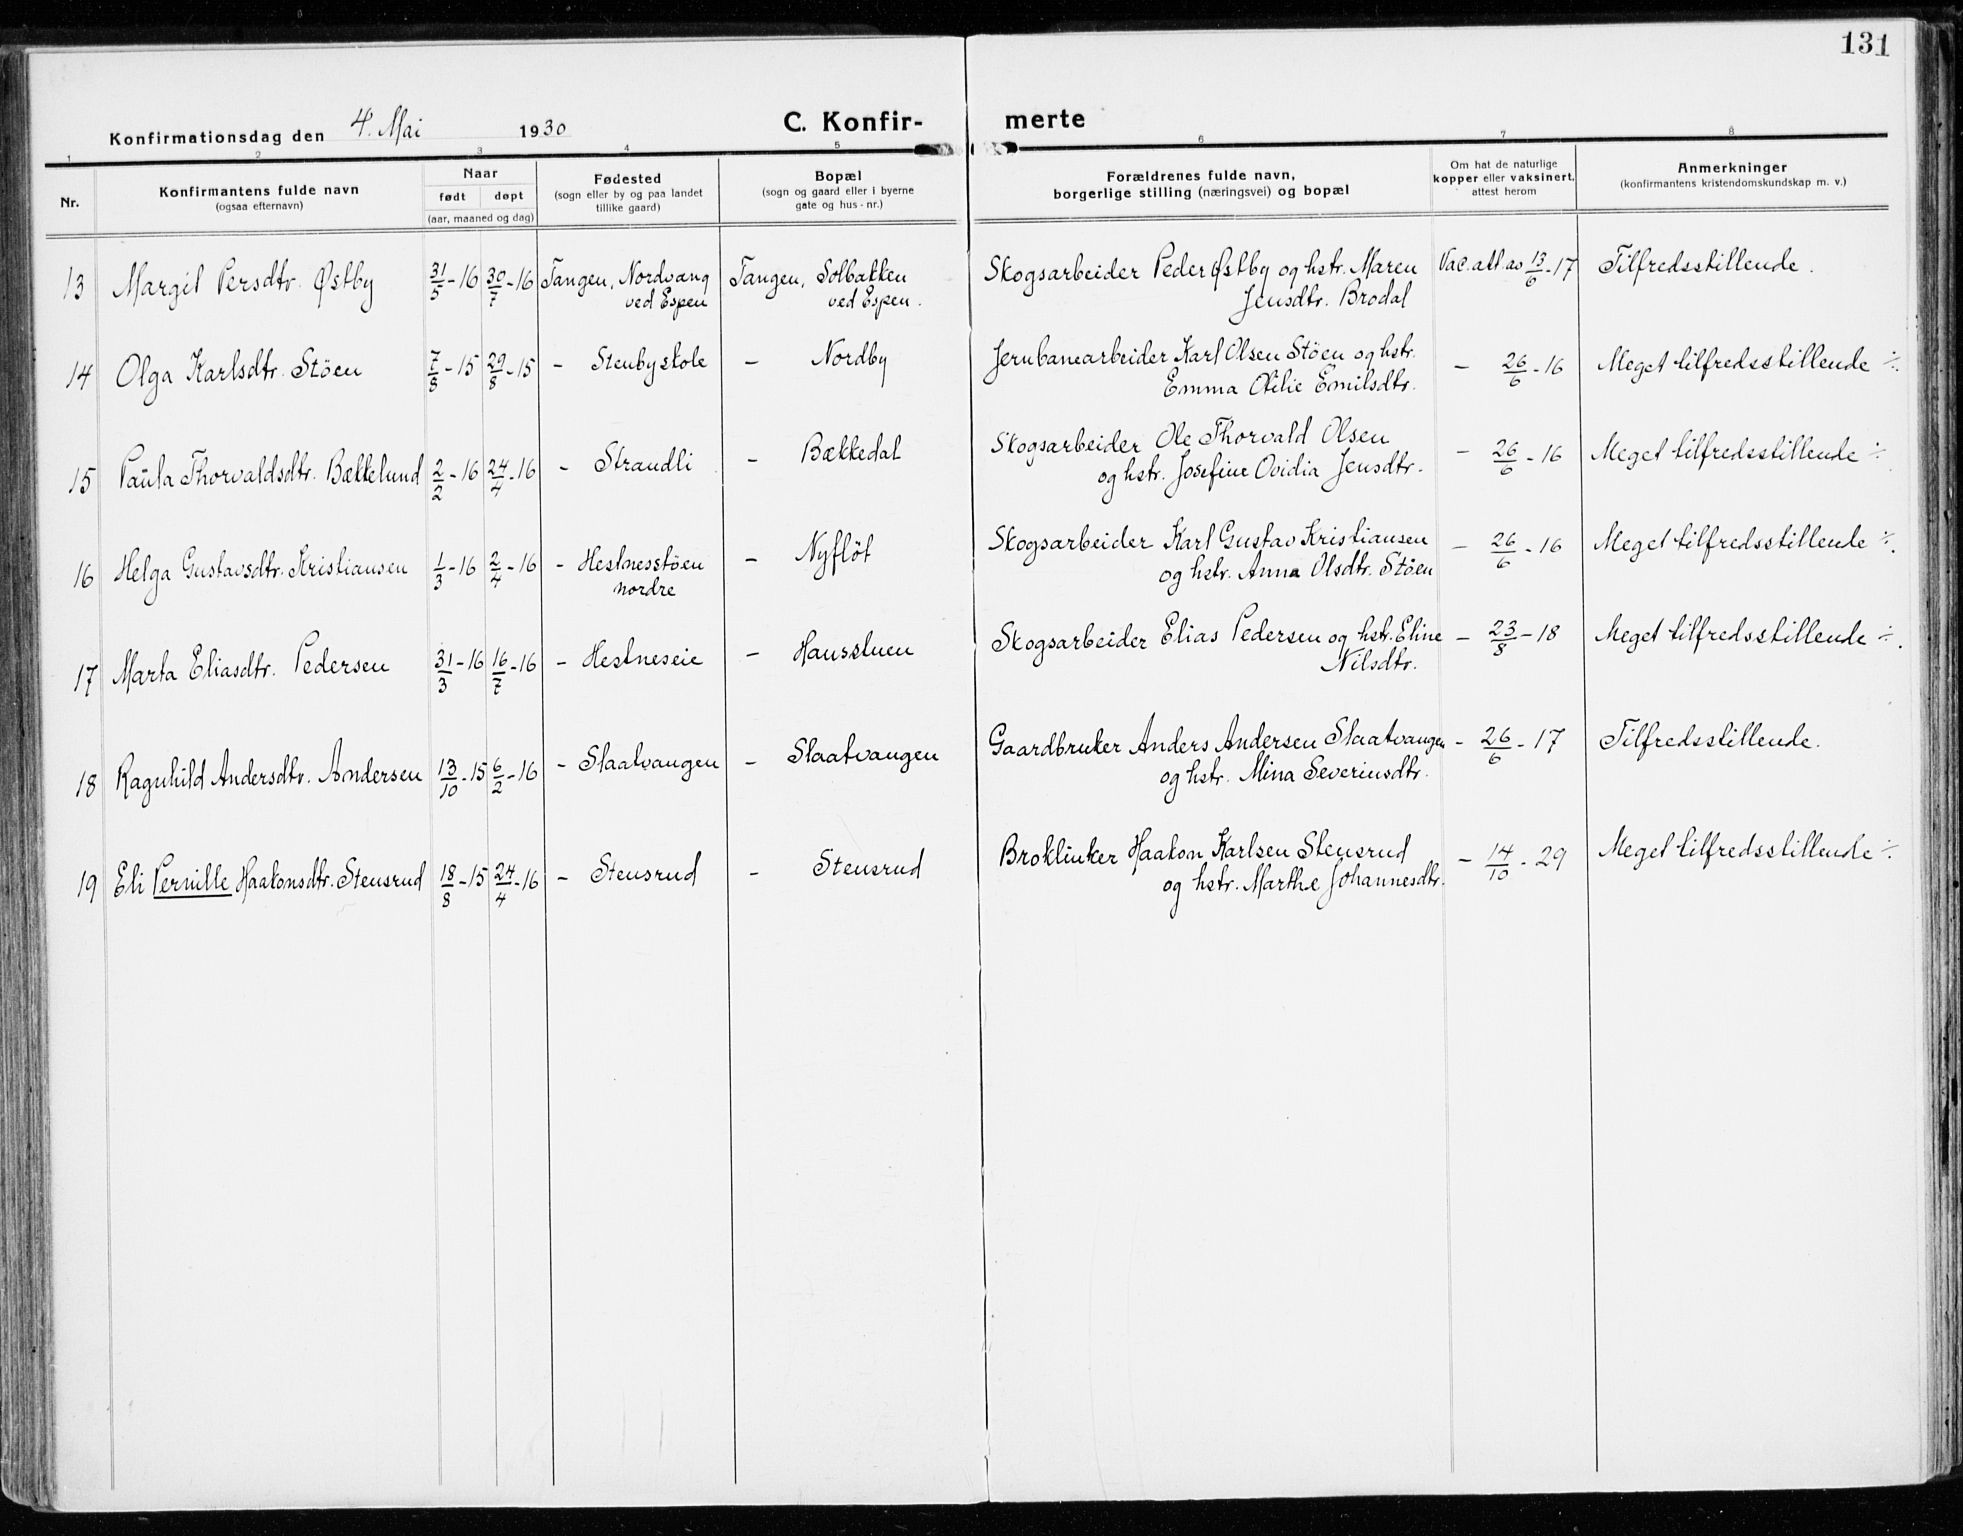 131
Konfirmationsdag den 4. Mai 1930 C. Konfirmerte
1 2 3 4 5 6 7 8
Nr. Konfirmantens fulde navn (ogsaa efternavn) Naar født døpt (aar, maaned og dag) Fødested (sogn eller by og paa landet tillike gaard) Bopæl (sogn og gaard eller i byerne gate og hus-nr.) Forældrenes fulde navn, borgerlige stilling (næringsvei) og bopæl Om hat de naturlige kopper eller vaksinert, attest herom Anmerkninger (konfirmantens kristendomskundskap m. v.)
13 Margit Persdtr. Østby 31/5-16 30/7-16 Tangen, Nordvang ved Espen Tangen, Solbakken ved Espen. Skogsarbeider Peder Østby og hstr. Maren Jensdtr. Brodal Vac. att. av 13/6-17 Tilfredsstillende.
14 Olga Karlsdtr. Stöen 7/8-15 29/8-15 - Stenby skole - Nordby Jernbanearbeider Karl Olsen Stöen og hstr. Emma Otilie Emilsdtr. - 26/6-16 Meget tilfredsstillende ÷.
15 Paula Thorvaldsdtr. Bækkelund 2/2-16 24/4-16 - Strandli - Bækkedal Skogsarbeider Ole Thorvald Olsen og hstr. Josefine Ovidia Jensdtr. - 26/6-16 Meget tilfredsstillende ÷
16 Helga Gustavsdtr. Kristiansen 1/3-16 2/4-16 - Hestnesstöen nordre - Nyflöt Skogsarbeider Karl Gustav Kristiansen og hstr. Anna Olsdtr. Stöen - 26/6-16 Meget tilfredsstillende ÷.
17 Marta Eliasdtr. Pedersen 31/3-16 16/7-16 - Hestneseie - Hausstuen Skogsarbeider Elias Pedersen og hstr. Eline Nilsdtr. - 23/8-18 Meget tilfredsstillende ÷.
18 Ragnhild Andersdtr. Andersen 13/10-15 6/2-16 - Slaatvangen - Slaatvangen Gaardbruker Anders Andersen Slaatvangen og hstr. Mina Severinsdtr. - 26/6-17 Tilfredsstillende.
19 Eli Pernille Haakonsdtr. Stensrud 18/8-15 24/4-16 - Stensrud - Stensrud Haakon Karlsen Stensrud og hstr. Marthe Johannesdtr. - 14/10-29 Meget tilfredsstillende ÷.